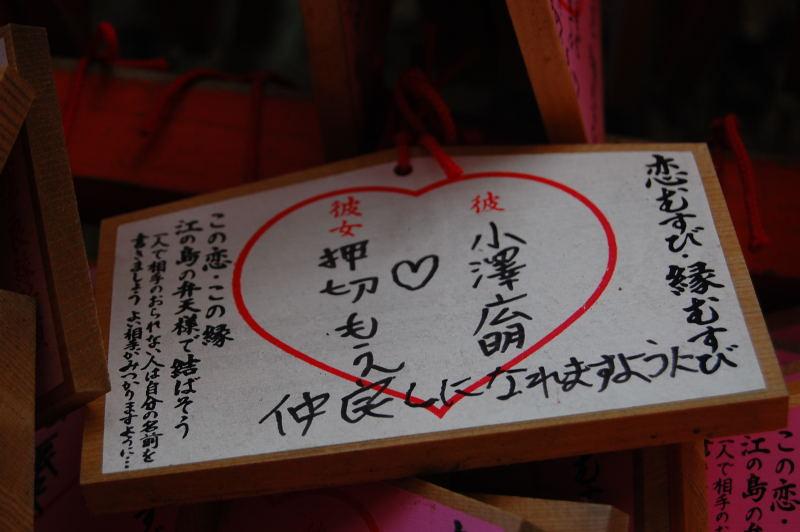 恋むすび・縁むすび
彼
小澤広明
♡
彼女
押切もえ
仲良しになれますように
この恋・この縁
江の島の弁天様で結ばそう
一人で相手のおられない人は自分の名前を
書きましょう よい相手がみつかりますように…
この恋・
江の島の弁
一人で相手のお